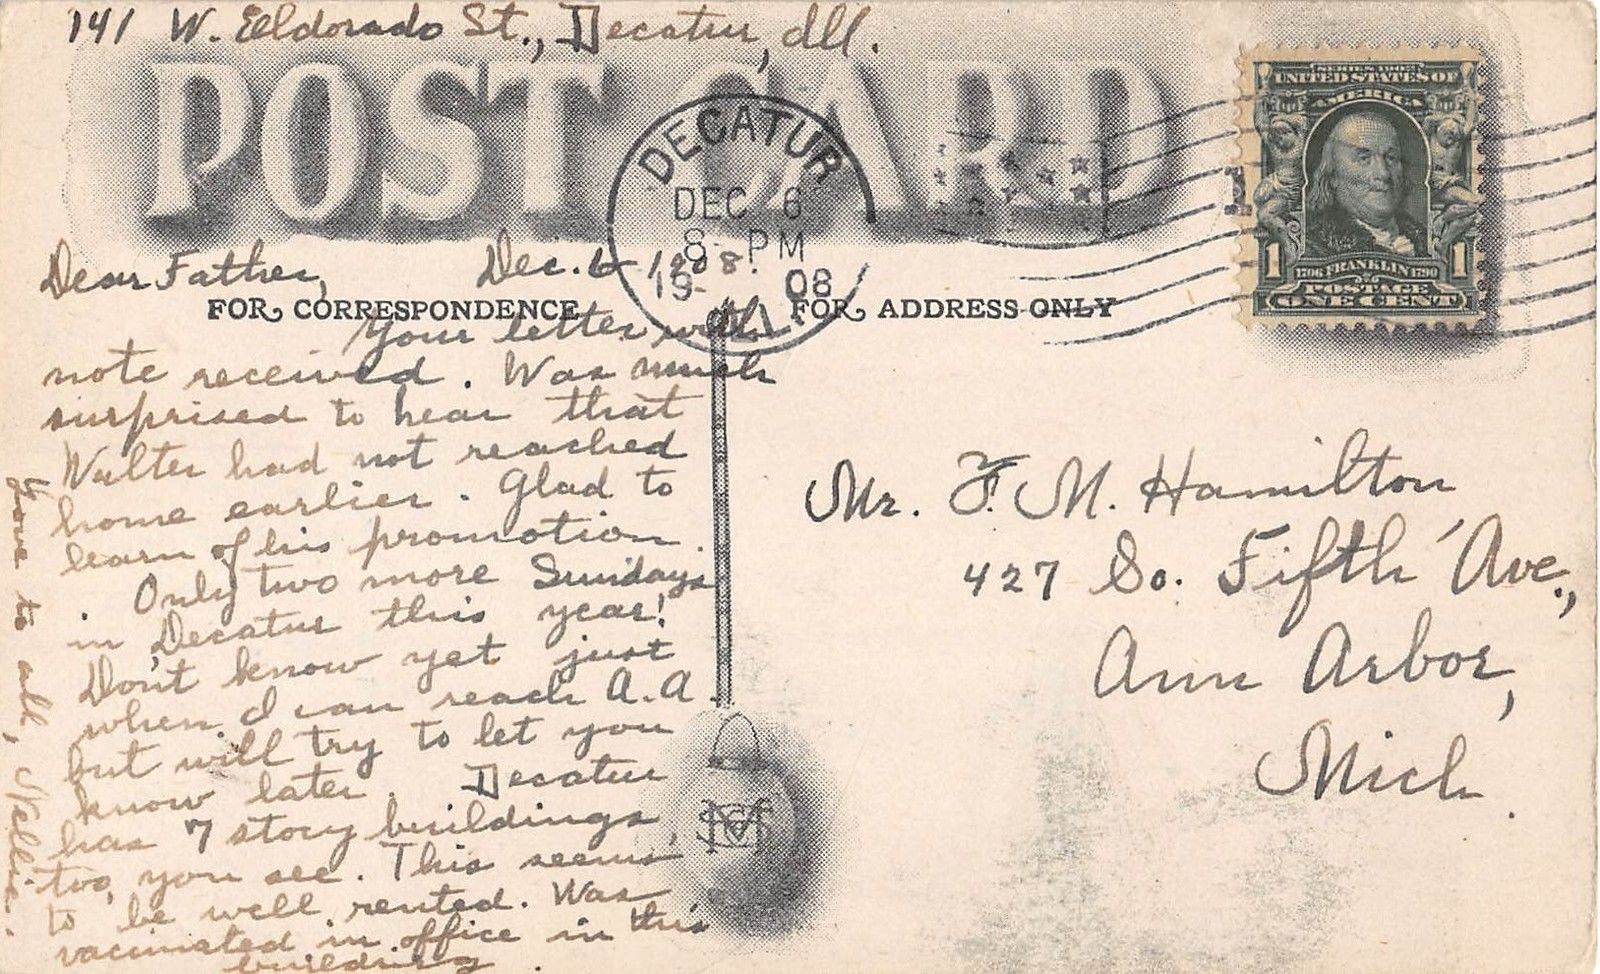 141 W. Eldorado St., Decatur, Ill.
POST CARD
DECATUR
DEC 6
8- PM
1908
ILL.
SERIES 1902
UNITED STATES OF
AMERICA
1 1
1706 FRANKLIN 1790
POSTAGE
ONE CENT
Dear Father, Dec. 6 1908.
FOR CORRESPONDENCE
FOR ADDRESS ONLY
Your letter with
note received. Was much
surprised to hear that
Walter had not reached
home earlier. Glad to
learn of his promotion.
Only two more Sundays
in Decatur this year!
Don't know yet just
when I can reach A.A.
but will try to let you
know later. Decatur
has 7 story buildings,
too, you see. This seems
to be well rented. Was
vaccinated in office in this
building.
Love to all, Nellie.
Mr. F. M. Hamilton
427 So. Fifth Ave.,
Ann Arbor,
Mich.